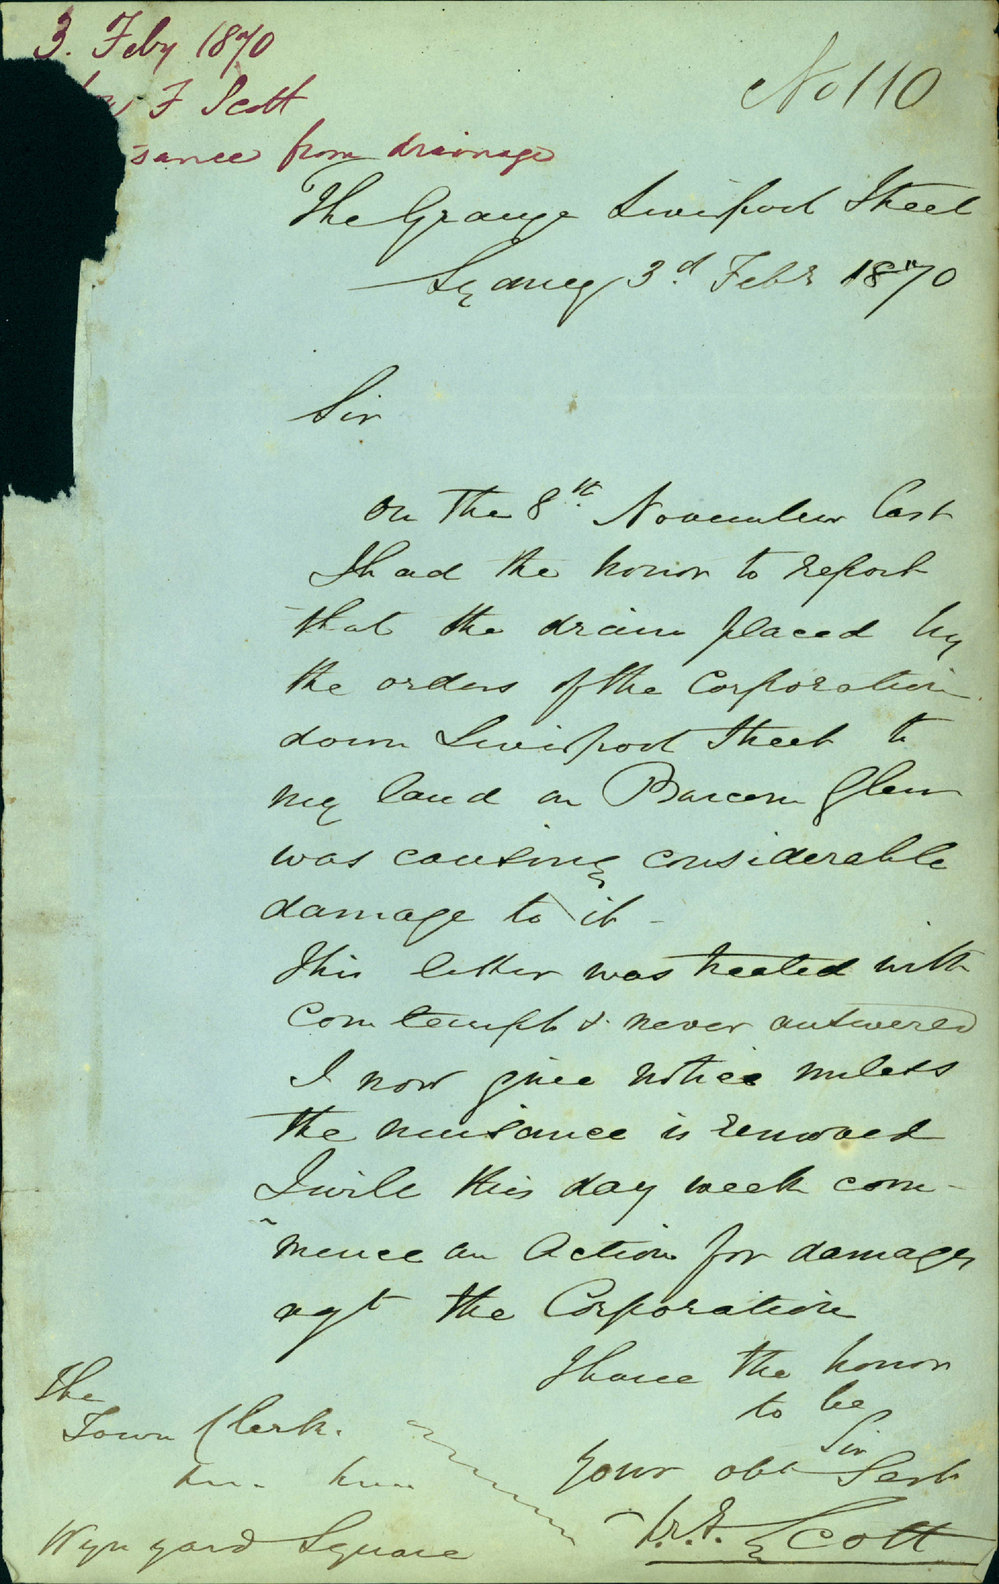 3. Feby 1870
F Scott
No 110
sance from drainage
The Grange Liverpool Street
Sydney 3d. Feby 1870
Sir
On the 8th November last
I had the honor to report
that the drain placed by
the orders of the Corporation
down Liverpool Street to
my land on Barcom Glen
was causing considerable
damage to it -
This letter was treated with
contempt & never answered
I now give notice unless
the nuisance is removed
I will this day week com-
mence an Action for damages
agt the Corporation
I have the honor
to be
Sir
Your obt Sert
Scott
The
Town Clerk.
Wynyard Square